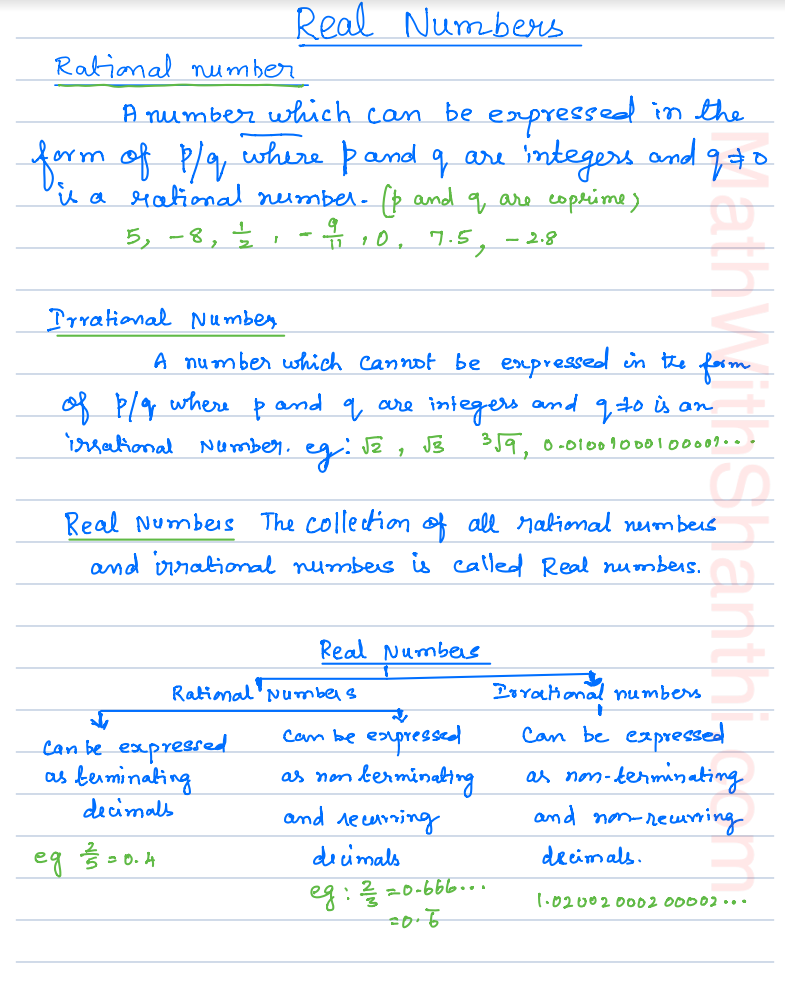 Real Numbers
Rational number
A number which can be expressed in the
form of p/q where p and q are integers and q≠0
is a rational number. (p and q are coprime)
5, -8, 1/2, -9/11, 0, 7.5, -2.8
Irrational Number
A number which cannot be expressed in the form
of p/q where p and q are integers and q≠0 is an
irrational Number. eg: √2, √3 ³√9, 0.01001000100001...
Real Numbers The collection of all rational numbers
and irrational numbers is called Real numbers.
Real Numbers
Rational Numbers Irrational numbers
Can be expressed
as terminating
decimals
eg 2/5 = 0.4
Can be expressed
as non terminating
and recurring
decimals
eg: 2/3 = 0.666...
= 0.6̅
Can be expressed
as non-terminating
and non-recurring
decimals.
1.02002000200002...
MathWithShanthi.com